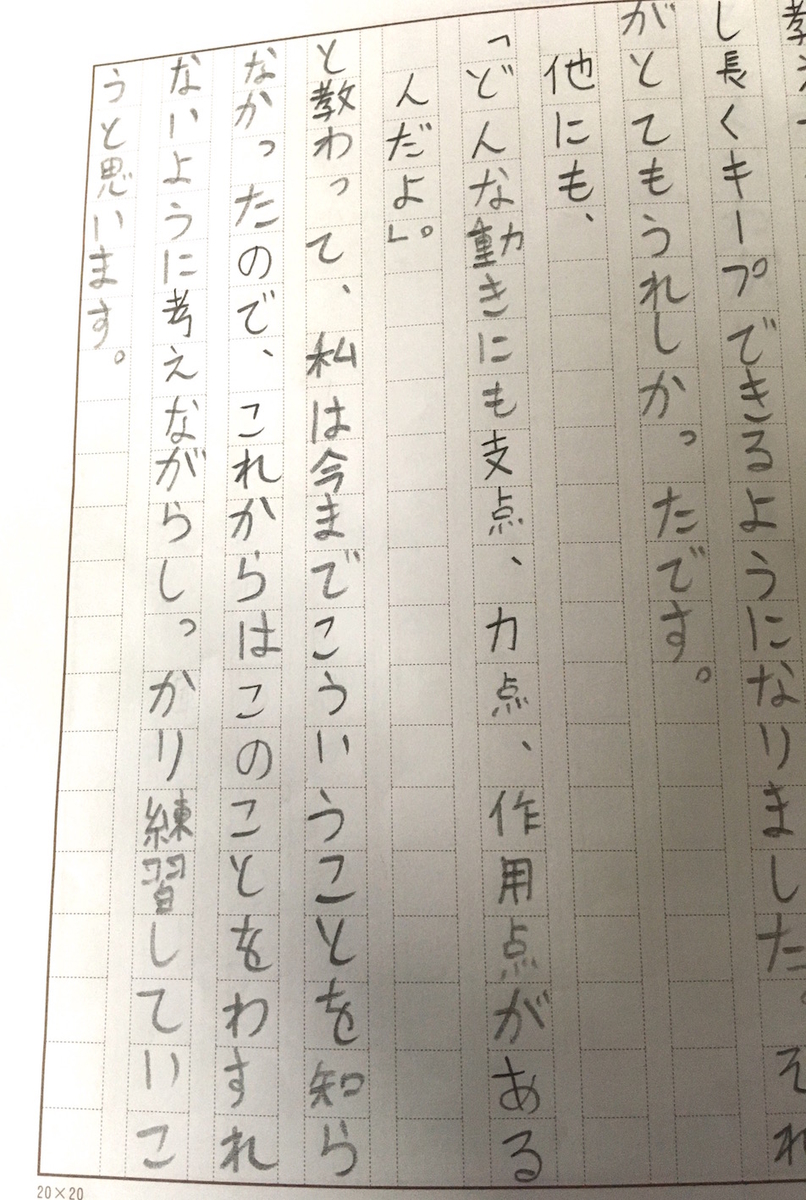 し長くキープできるようになりました。それ
がとてもうれしかったです。
他にも、
「どんな動きにも支点、力点、作用点がある
んだよ」。
と教わって、私は今までこういうことを知ら
なかったので、これからはこのことをわすれ
ないように考えながらしっかり練習していこ
うと思います。
20×20